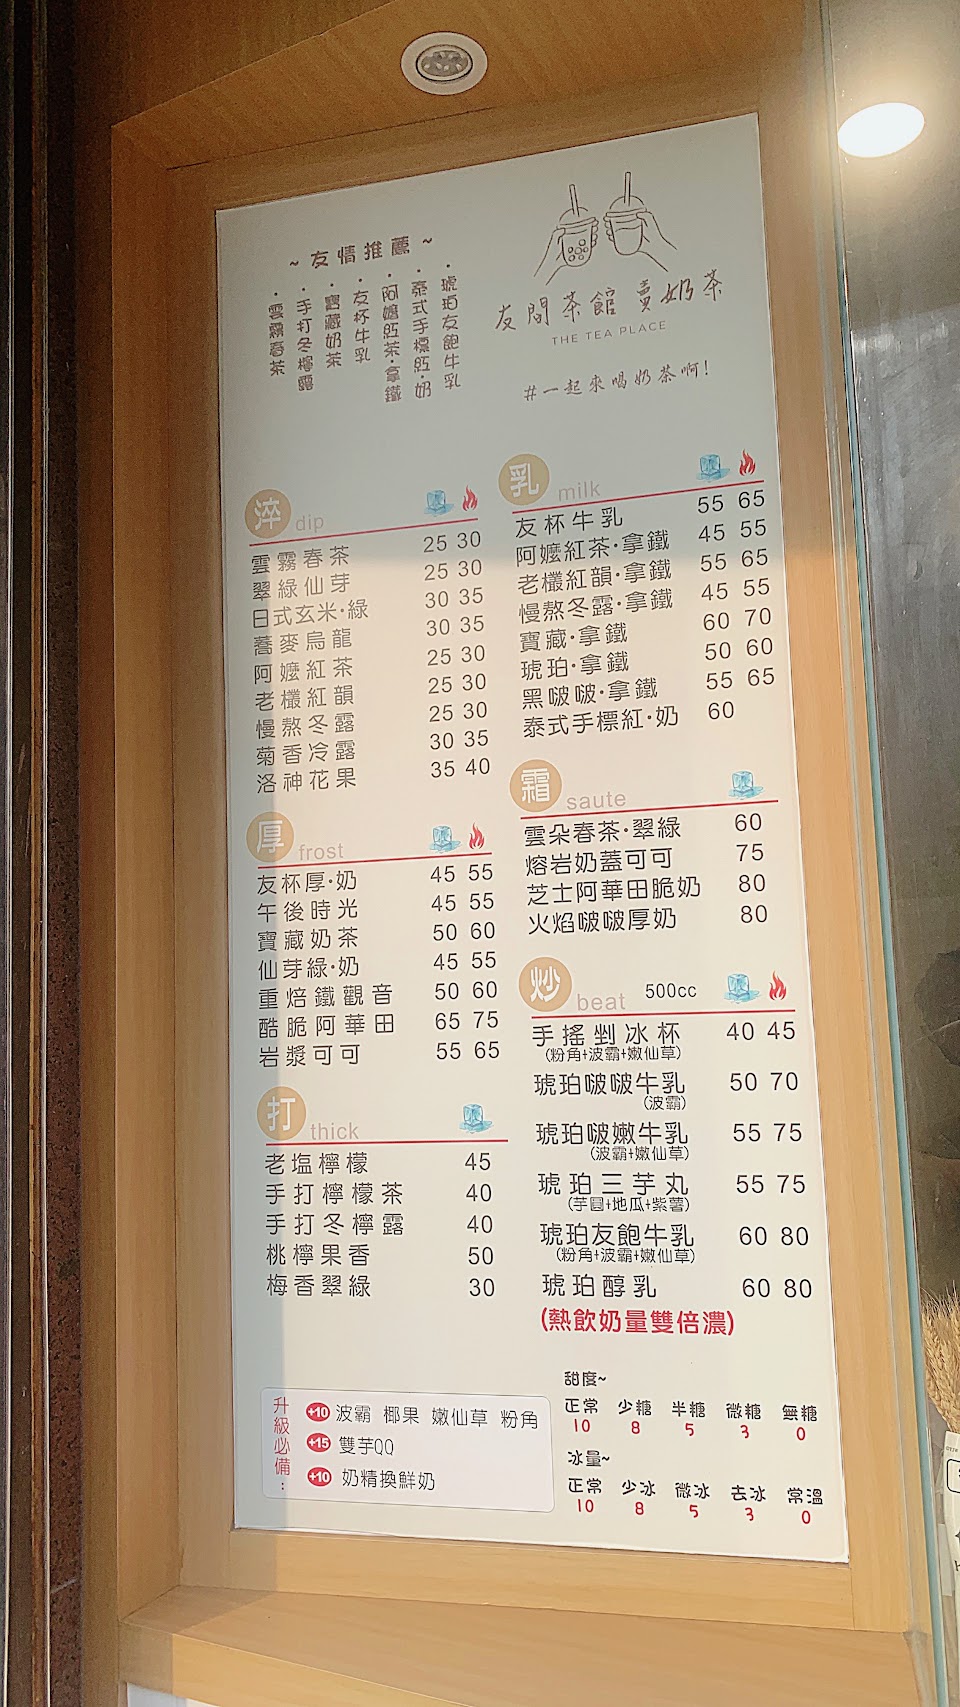 ~友情推薦~
·琥珀友飽牛乳
·泰式手標紅·奶
·阿嬤紅茶·拿鐵
·友杯牛乳
·寶藏奶茶
·手打冬檸露
·雲霧春茶
友問茶館 賣奶茶
THE TEA PLACE
#一起來喝奶茶啊!
淬 dip
雲霧春茶 25 30
翠綠仙芽 25 30
日式玄米·綠 30 35
蕎麥烏龍 30 35
阿嬤紅茶 25 30
老欉紅韻 25 30
慢熬冬露 25 30
菊香冷露 30 35
洛神花果 35 40
厚 frost
友杯厚·奶 45 55
午後時光 45 55
寶藏奶茶 50 60
仙芽綠·奶 45 55
重焙鐵觀音 50 60
酷脆阿華田 65 75
岩漿可可 55 65
打 thick
老塩檸檬 45
手打檸檬茶 40
手打冬檸露 40
桃檸果香 50
梅香翠綠 30
乳 milk
友杯牛乳 55 65
阿嬤紅茶·拿鐵 45 55
老欉紅韻·拿鐵 55 65
慢熬冬露·拿鐵 45 55
寶藏·拿鐵 60 70
琥珀·拿鐵 50 60
黑啵啵·拿鐵 55 65
泰式手標紅·奶 60
霜 saute
雲朵春茶·翠綠 60
熔岩奶蓋可可 75
芝士阿華田脆奶 80
火焰啵啵厚奶 80
炒 beat 500cc
手搖剉冰杯 40 45
(粉角+波霸+嫩仙草)
琥珀啵啵牛乳 50 70
(波霸)
琥珀啵嫩牛乳 55 75
(波霸+嫩仙草)
琥珀三芋丸 55 75
(芋圓+地瓜+紫薯)
琥珀友飽牛乳 60 80
(粉角+波霸+嫩仙草)
琥珀醇乳 60 80
(熱飲奶量雙倍濃)
升級必備:
+10 波霸 椰果 嫩仙草 粉角
+15 雙芋QQ
+10 奶精換鮮奶
甜度~
正常 少糖 半糖 微糖 無糖
10 8 5 3 0
冰量~
正常 少冰 微冰 去冰 常溫
10 8 5 3 0